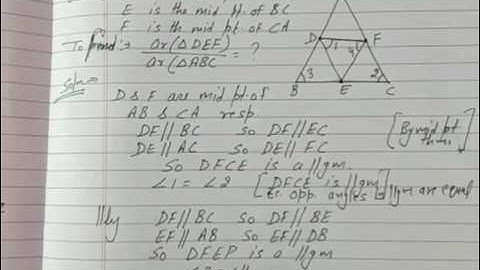 E is the mid pt. of BC
F is th mid pt. of CA
To : ar(△DEF) / ar(△ABC = ?
Soln
D & F are mid pt. of
AB & CA resp.
DF//BC So DF//EC [By mid pt
DE//AC So DE//FC
So DFCE is a //gm.
∠1 = ∠2 [DFCE is //gm
opp. angles //gm are equal
//ly DF//BC So DF//BE
EF//AB So EF//DB
So DFEP is a //gm
D
F
1
4
3
2
B
E
C